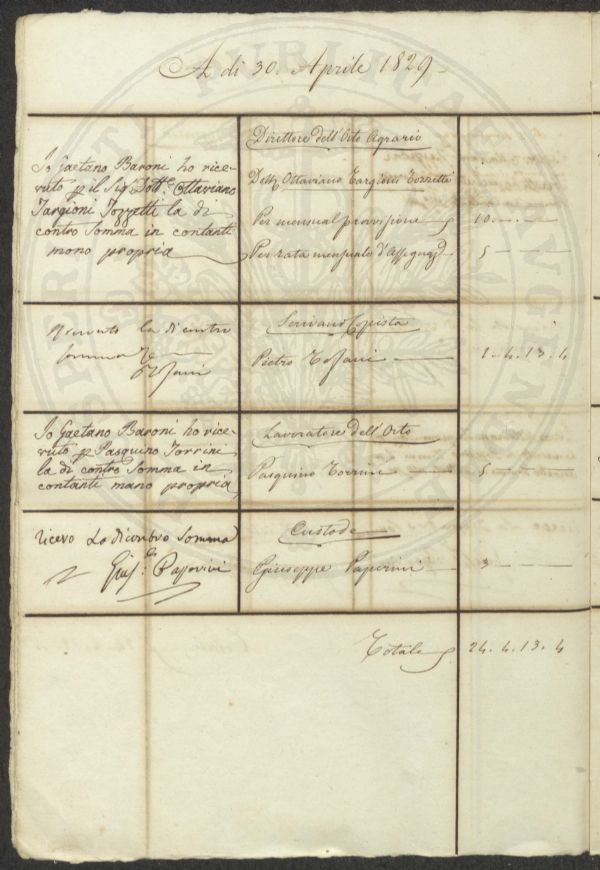 A di 30. Aprile 1829.
Direttore dell'Orto Agrario
Io Gaetano Baroni ho rice-
vuto p il Sig. Dott.e Ottaviano
Targioni Tozzetti la di
contro Somma in contanti
mano propria
Dott. Ottaviano Targioni Tozzetti
Per mensual provvisione 10. - - -
Per rata mensuale d'Assegnaz. 5 - - -
Scrivano Copista
la di contro
somma
Pietro 1. 4. 13. 4
Lavoratore dell'Orto
Io Gaetano Baroni ho rice-
vuto p Pasquino Torrini
la di contro Somma in
contanti mano propria
Pasquino Torrini 5 - - -
Custode
ricevo La dicontro Somma
Gius.e Paperini
Giuseppe Paperini 3 - - -
Totale 24. 4. 13. 4